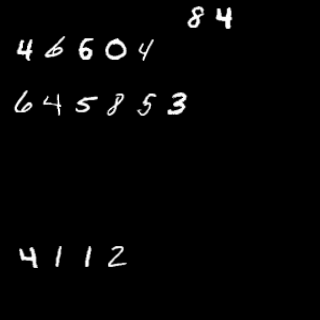 84
46604
645853
4112